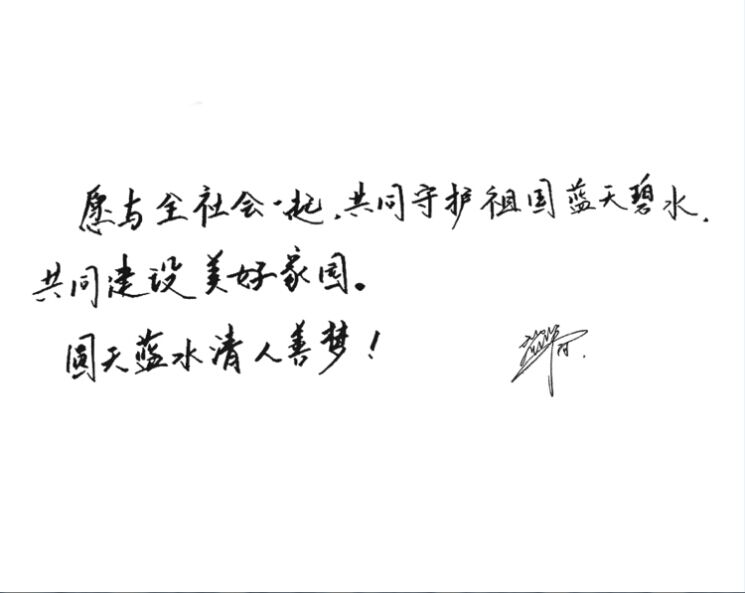 愿与全社会一起，共同守护祖国蓝天碧水，
共同建设美好家园。
圆天蓝水清人善梦！